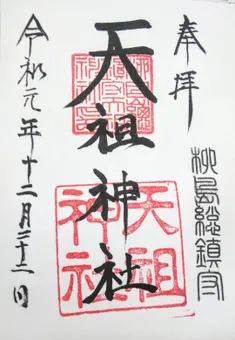 奉拝
柳島総鎮守
天祖神社
天祖
神社
令和元年十二月二十二日